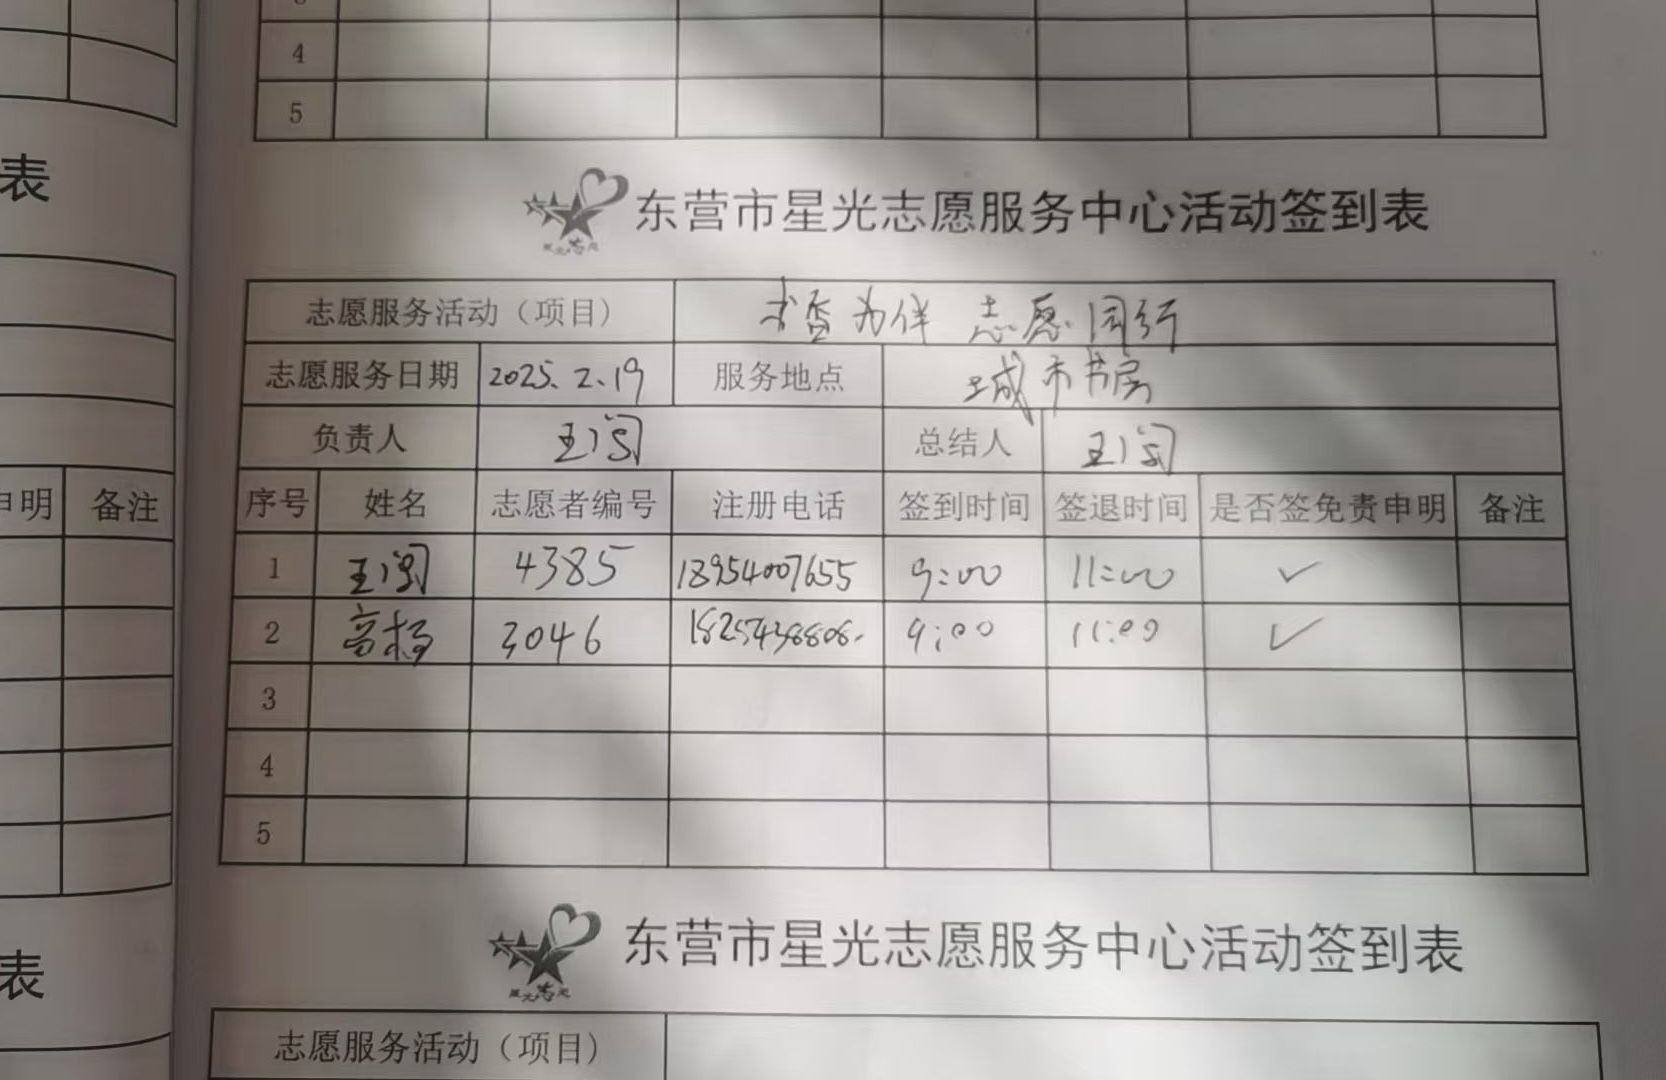 4
5
表
东营市星光志愿服务中心活动签到表
志愿服务活动（项目） 书香为伴 志愿同行
志愿服务日期 2025.2.19 服务地点 城市书房
负责人 王 总结人 王
申明 备注 序号 姓名 志愿者编号 注册电话 签到时间 签退时间 是否签免责申明 备注
1 王 4385 18954007655 9:00 11:00 ✓
2 高杨 3046 1825438808. 9:00 11:00 ✓
3
4
5
表
东营市星光志愿服务中心活动签到表
志愿服务活动（项目）